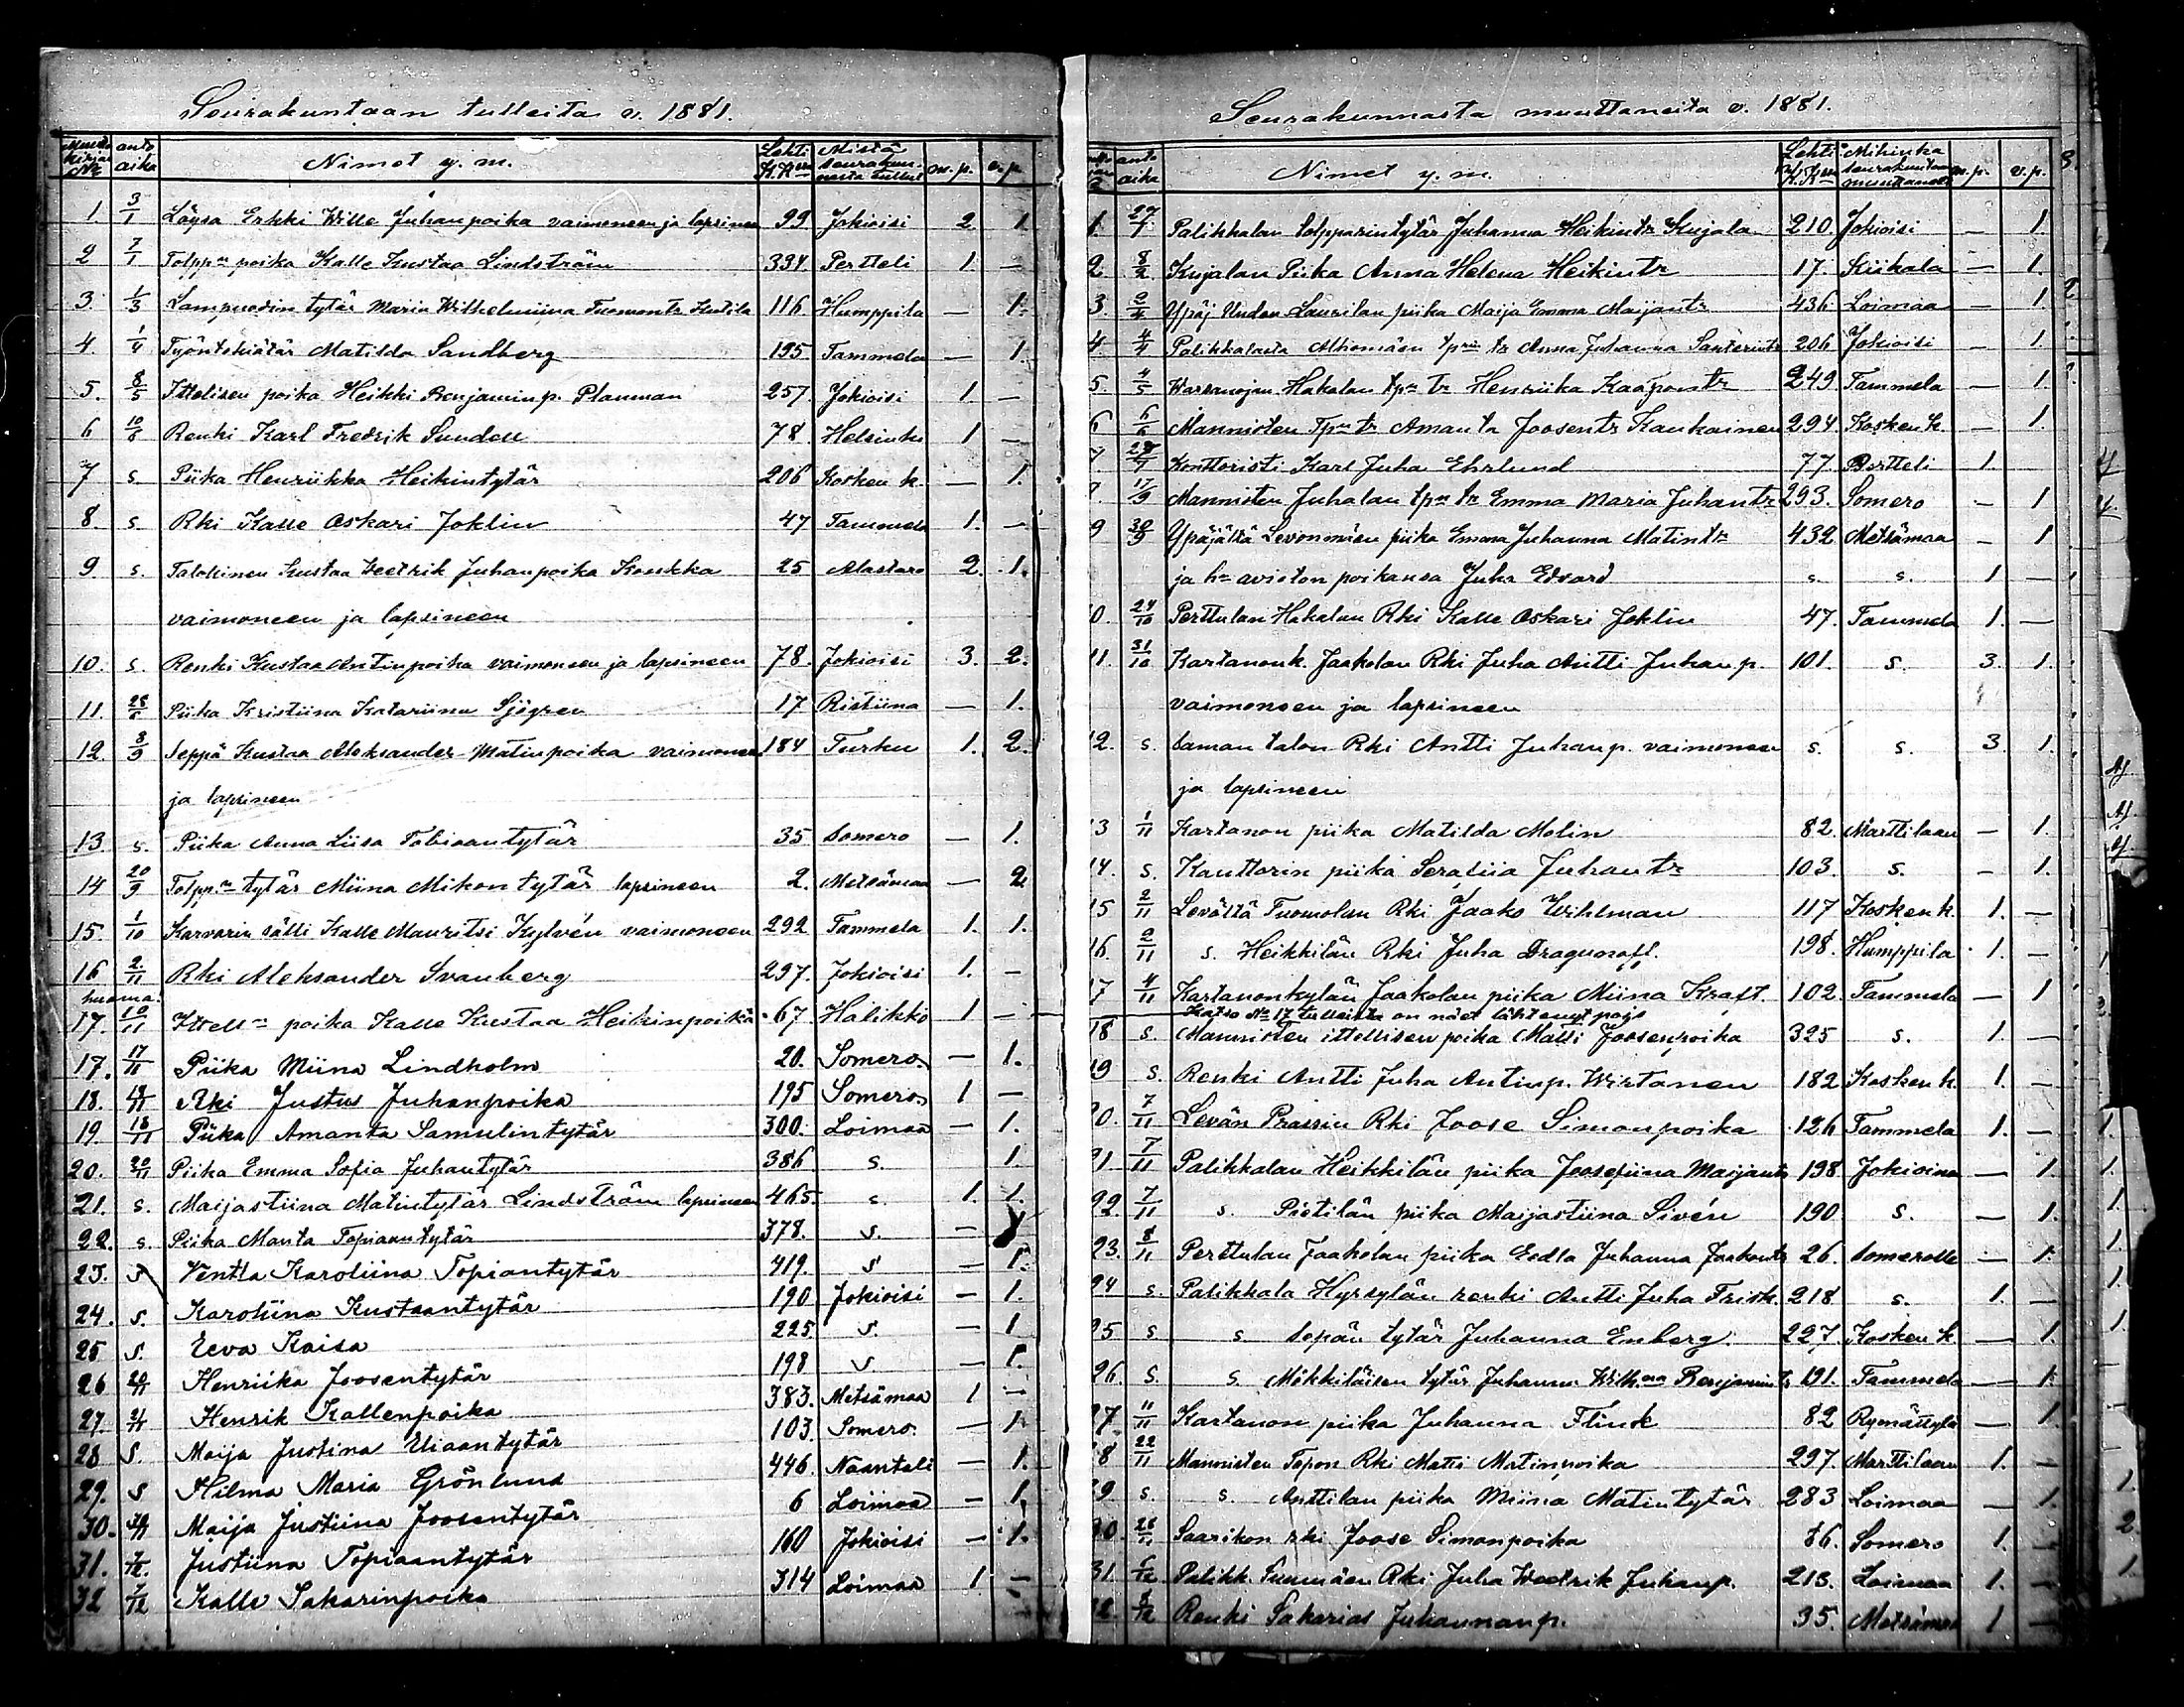 Seurakuntaan tulleita v. 1881.
Muutto kirjan No anto aika Nimet y. m. Lehti K.K:ssa Mistä seurakunnasta tulleet m.p. v.p.
1 3/1 Löysä Erkki Wille Juhanpoika vaimoneen ja lapsineen 99 Jokioisi 2 1
2 7/1 Tolpp:n poika Kalle Kustaa Lindström 394 Pertteli 1. —
3. 1/3 Lampuodin tytär Maria Wilhelmiina Tuomontr Kutila 116 Humppila — 1.
4. 1/4 Työntekiätär Matilda Sandberg 195 Tammela — 1.
5. 8/5 Ittelisen poika Heikki Benjaminp. Planman 257. Jokioisi 1. —
6 10/8 Renki Karl Fredrik Sundell 78. Helsinki 1 —
7 s. Piika Henriikka Heikintytär 206 Kosken k. — 1.
8. s. Rki Kalle Oskari Joklin 47 Tammela 1. —
9. s. Talollinen Kustaa Weetrik Juhanpoika Koukka 25 Alastaro 2. 1.
vaimoneen ja lapsineen
10. s. Renki Kustaa Antinpoika vaimoneen ja lapsineen 78. Jokioisi 3. 2.
11. Piika Kristiina Katariina Sjögren 17 Ristiina — 1.
12. 8/9 Seppä Kustaa Aleksander Matinpoika vaimoneen 184 Turku 1. 2.
ja lapsineen
13. s. Piika Anna Liisa Tobiaantytär 35 Somero — 1.
14 20/9 Tolpp:n tytär Miina Mikontytär lapsineen 2. Metsämaa — 2
15. 1/10 Karvarin sälli Kalle Mauritsi Kylvén vaimoneen 292 Tammela 1. 1.
16 2./11 Rki Aleksander Svanberg 297. Jokioisi 1. —
huoma.
17. 10/11 Ittell:n poika Kalle Kustaa Heikinpoika 67. Halikko 1 —
17. 17/11 Piika Miina Lindholm 20. Somero. — 1.
18. Rki Justus Juhanpoika 195 Somero 1 —
19 18/11 Piika Amanta Samulintytär 300. Loimaa — 1.
20. 20/11 Piika Emma Sofia Juhantytär 386 s. 1.
21. s. Maijastiina Matintytär Lindström lapsineen 465. s. 1. 1.
22. s. Piika Manta Topiaantytär 378. s. —
23. s. Ventla Karoliina Topiantytär 419. s — 1.
24. s. Karoliina Kustaantytär 190 Jokioisi — 1.
25 s. Eeva Kaisa 225. s. — 1
26 20/11 Henriika Joosentytär 198 s. — 1.
27. Henrik Kallenpoika 383. Metsämaa 1 —
28 s. Maija Justina Uiaantytär 103. Somero. — 1.
29. s Hilma Maria Grönlund 446. Naantali — 1.
30. Maija Justiina Joosentytär 6 Loimaa — 1.
31. Justiina Topiaantytär 160 Jokioisi — 1.
32 7/12 Kalle Sakarinpoika 314 Loimaa 1 —
Seurakunnasta muuttaneita v. 1881. 3.
anto aika Nimet y. m. Lehti K.K:ssa Mihinkä seurakuntaan muuttaneet m.p. v.p.
1. 27/1 Palikkalan tolpparintytär Juhanna Heikintr Kujala 210. Jokioisi — 1.
2 8/2 Kujalan Piika Anna Helena Heikintr 17. Kiikala — 1.
3. 2/4 Ypäj Uuden Laurilan piika Maija Emma Maijantr 436. Loimaa — 1.
4. 4/4 Palikkalasta Alhomäen tprin tr Anna Juhanna Santerintr 206 Jokioisi — 1.
5. 4/5 Warsanojan Hakalan tpn tr Henriika Kaaponstr 249. Tammela — 1.
6 6/6 Mannisten Tpn tr Amanta Joosentr Kaukainen 294. Kosken k. — 1.
7. 28/7 Konttoristi Karl Juha Ehrlund 77. Pertteli 1.
8. 17/9 Mannisten Juhalan tpn tr Emma Maria Juhantr 293. Somero — 1
9 30/9 Ypäjältä Levonmäen piika Emma Juhanna Matintr 432 Metsämaa — 1
ja h:n avioton poikansa Juha Edvard s. s. 1 —
0. 24/10 Perttulan Hakalan Rki Kalle Oskari Joklin 47. Tammela 1. —
11. 31/10 Kartanonk. Jaakolan Rki Juha Antti Juhanp. 101. s. 3. 1.
vaimoneen ja lapsineen
12. s. saman talon Rki Antti Juhanp. vaimoneen s. s. 3 1.
ja lapsineen
13 1/11 Kartanon piika Matilda Molin 82. Marttilaan — 1.
14. s. Kanttorin piika Serafiia Juhantr 103. s. — 1.
15 2/11 Levältä Tuomolan Rki Jaako Wihlman 117 Kosken k. 1. —
16. 2/11 s. Heikkilän Rki Juha Dragunoff. 198. Humppila 1. —
17 4/11 Kartanonkylän Jaakolan piika Miina Kraft. 102. Tammela — 1
Katso No 17 tulleista on näet lähtenyt pois
18 s. Mannisten ittellisen poika Matti Joosenpoika 325 s. 1. —
19 s. Renki Antti Juha Antinp. Wirtanen 182 Kosken k. 1. —
20. 7/11 Levän Prassin Rki Joose Simonpoika 126 Tammela 1. —
21 7/11 Palikkalan Heikkilän piika Joosefiina Maijantr 198 Jokioinen — 1.
22. 7/11 s. Pietilän piika Maijastiina Sivén 190 s. — 1.
23. 8/11 Perttulan Jaakolan piika Eedla Juhanna Jaakontr 26. Somerolle — 1.
24 s. Palikkala Hyrsylän renki Antti Juha Frisk. 218 s. 1. —
25 s s. Sepän tytär Juhanna Enberg. 227. Kosken k — 1.
26. s. s. Mäkkiläisen tytär Juhanna Wilh:na Benjamintr 191. Tammela — 1.
27. 11/11 Kartanon piika Juhanna Flinck 82 Rymättylä — 1
28 22/11 Mannisten Topon Rki Matti Matinpoika 297. Marttilaan 1. —
29 s. s. Anttilan piika Miina Matintytär 283 Loimaa — 1.
30. 26/11 Saarikon rki Joose Simonpoika 86. Somero 1. —
31. 5/12 Palikk. Rki Juha Weetrik Juhanp. 213. Loimaa 1. —
32. 8/12 Renki Sakarias Juhannanp. 35. Metsämaa 1 —